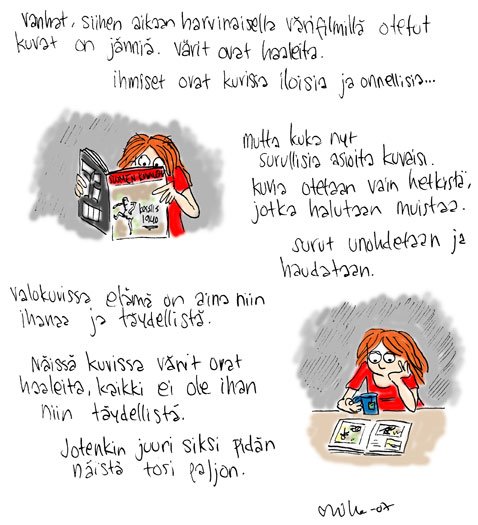 vanhat, siihen aikaan harvinaisella värifilmillä otetut
kuvat on jänniä. värit ovat haaleita.
ihmiset ovat kuvissa iloisia ja onnellisia...
mutta kuka nyt
surullisia asioita kuvaisi.
kuvia otetaan vain hetkistä,
jotka halutaan muistaa.
surut unohdetaan ja
haudataan.
SUOMEN
kesällä
1940
valokuvissa elämä on aina niin
ihanaa ja täydellistä.
Näissä kuvissa värit ovat
haaleita, kaikki ei ole ihan
niin täydellistä.
Jotenkin juuri siksi pidän
näistä tosi paljon.
-07